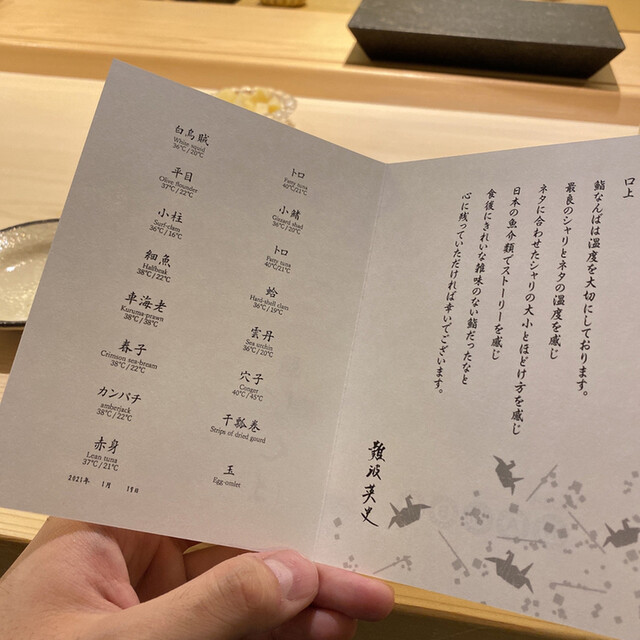 白烏賊
White squid
36℃/20℃
平目
Olive flounder
37℃/22℃
小柱
Surf-clam
36℃/16℃
細魚
Halfbeak
38℃/22℃
車海老
Kuruma-prawn
38℃/38℃
春子
Crimson sea-bream
38℃/22℃
カンパチ
amberjack
38℃/22℃
赤身
Lean tuna
37℃/21℃
2021年 1月 19日
トロ
Fatty tuna
40℃/21℃
小鰭
Gizzard shad
36℃/20℃
トロ
Fatty tuna
40℃/21℃
蛤
Hard-shell clam
36℃/19℃
雲丹
Sea urchin
36℃/20℃
穴子
Conger
40℃/45℃
干瓢巻
Strips of dried gourd
玉
Egg-omlet
口上
鮨なんばは温度を大切にしております。
最良のシャリとネタの温度を感じ
ネタに合わせたシャリの大小とほどけ方を感じ
日本の魚介類でストーリーを感じ
食後にきれいな雑味のない鮨だったなと
心に残っていただければ幸いでございます。
難波英史